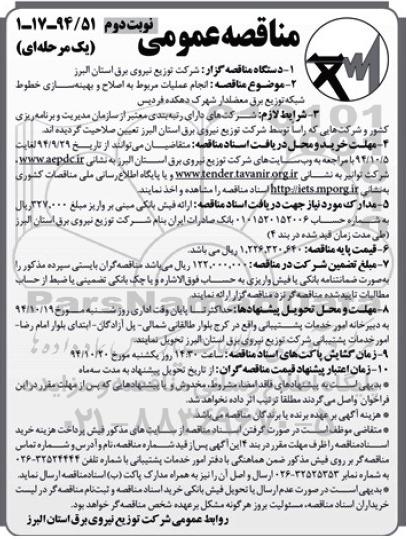 مناقصه عمومی
نوبت دوم
۱-۱۷-۹۴/۵۱
(یک مرحله‌ای)
۱-دستگاه مناقصه گزار: شرکت توزیع نیروی برق استان البرز
۲-موضوع مناقصه: انجام عملیات مربوط به اصلاح و بهینه‌سازی خطوط
شبکه توزیع برق معضلدار شهرک دهکده فردیس
۳- شرایط لازم: شرکت‌های دارای رتبه‌بندی معتبر از سازمان مدیریت و برنامه‌ریزی
کشور و شرکت‌هایی که راساً توسط شرکت توزیع نیروی برق استان البرز تعیین صلاحیت گردیده اند.
۴-مهلت خرید و محل دریافت اسناد مناقصه: متقاضیان می‌توانند از تاریخ ۹۴/۹/۲۹ لغایت
۹۴/۱۰/۵ با مراجعه به وب سایت‌های شرکت توزیع نیروی برق استان البرز به نشانی www.aepdc.ir،
شرکت توانیر به نشانی www.tender.tavanir.org.ir و یا پایگاه اطلاع‌رسانی ملی مناقصات کشوری
به‌نشانی http://iets.mporg.ir اسناد مناقصه را مشاهده و اخذ نمایند.
۵-مدارک مورد نیاز جهت دریافت اسناد مناقصه: ارائه فیش بانکی مبنی بر واریز مبلغ ۳۲۷,۰۰۰ ریال
به شماره حساب ۰۱۰۱۵۲۰۱۵۲۰۰۶ بانک صادرات ایران بنام شرکت توزیع نیروی برق استان البرز
(طی مدت زمان قید شده در بند ۴)
۶-قیمت پایه مناقصه: ۱,۲۲۶,۳۲۰,۶۴۰ ریال می باشد.
۷-مبلغ تضمین شرکت در مناقصه: ۱۲۲,۰۰۰,۰۰۰ ریال می‌باشد مناقصه‌گران بایستی سپرده مذکور را
به‌صورت ضمانتنامه بانکی یا فیش واریزی به حساب فوق‌الاشاره و یا چک بانکی تضمینی یا ضبط از حساب
مطالبات تایید شده مناقصه گر نزد مناقصه گزار ارائه نمایند.
۸-مهلت و محل تحویل پیشنهادها: حداکثر تا پایان وقت اداری روز شنبه مورخ ۹۴/۱۰/۱۹
به دبیرخانه امور خدمات پشتیبانی واقع در کرج بلوار طالقانی شمالی- پل آزادگان- ابتدای بلوار امام رضا-
امور خدمات پشتیبانی شرکت توزیع نیروی برق استان البرز تحویل نمایند.
۹-زمان گشایش پاکت های اسناد مناقصه: ساعت ۱۴:۳۰ روز یکشنبه مورخ ۹۴/۱۰/۲۰
۱۰-زمان اعتبار پیشنهاد قیمت مناقصه گران: از تاریخ تحویل پیشنهاد به مدت سه‌ماه
* بدیهی است به پیشنهادهای فاقد امضاء، مشروط، مخدوش و یا پیشنهادهایی که پس از مهلت مقرر در این
فراخوان واصل می گردند مطلقا ترتیب اثر داده نخواهد شد.
* هزینه آگهی بر عهده برنده یا برندگان مناقصه می‌باشد.
* متقاضی موظف است در صورت گرفتن اسناد مناقصه از سایت های مذکور فیش پرداخت هزینه خرید
اسناد مناقصه را ظرف مهلت مقرر در بند ۴ این آگهی پس از قید شماره مناقصه، نام و آدرس و شماره تماس
مناقصه‌گر بر روی فیش مذکور ضمن هماهنگی با دفتر امور خدمات پشتیبانی با شماره تلفن ۳۲۵۲۴۴۴۴-۰۲۶
به شماره نمابر ۳۲۵۲۵۳۵۳-۰۲۶ ارسال و اصل آن را نیز به همراه مدارک پاکت (ب) اسناد مناقصه ارسال نماید.
* بدیهی است در صورت عدم ارسال یا تحویل فیش بانکی خرید اسناد مناقصه و ثبت‌نام مناقصه‌گر در لیست
خریداران اسناد مناقصه، مسئولیت بروز هر گونه مشکل برعهده شخص مناقصه‌گر خواهد بود.
روابط عمومی شرکت توزیع نیروی برق استان البرز